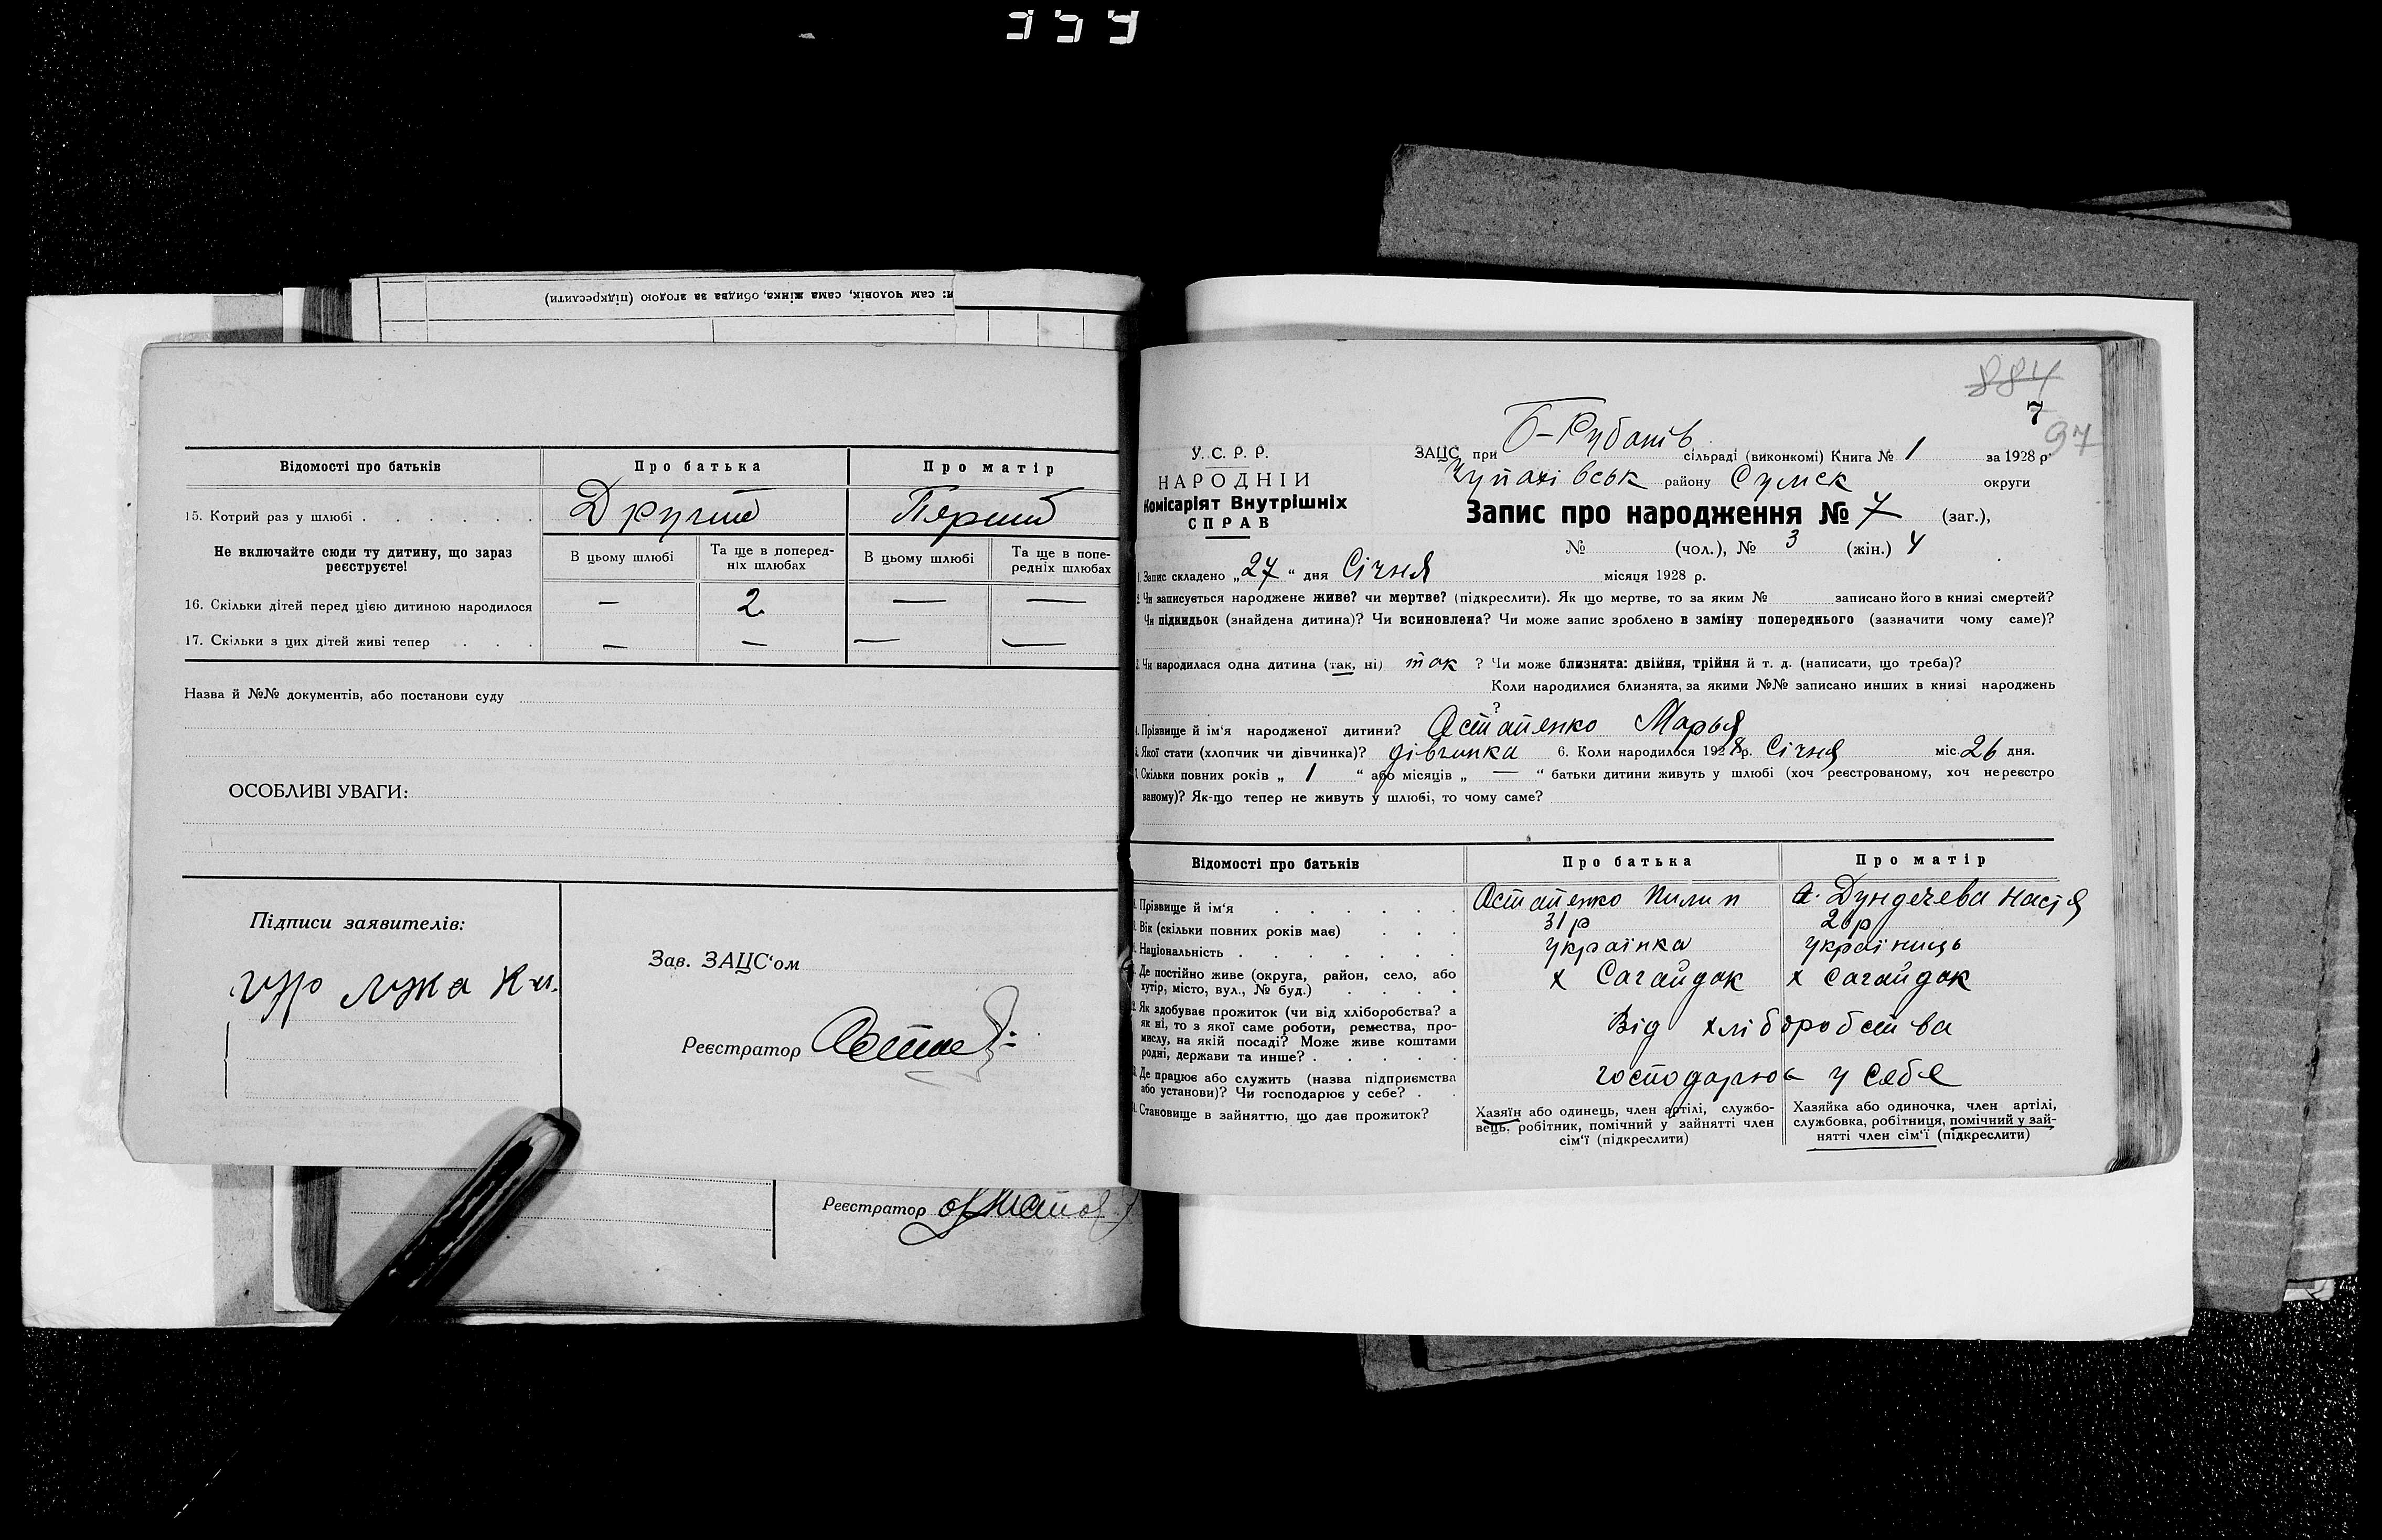 и: сам чоловік, сама жінка, обидва за згодою (підкреслити)
Відомості про батьків
Про батька
Про матір
15. Котрий раз у шлюбі
Другий
Перший
Не включайте сюди ту дитину, що зараз
реєструєте!
В цьому шлюбі
Та ще в поперед-
ніх шлюбах
В цьому шлюбі
Та ще в попе-
редніх шлюбах
16. Скільки дітей перед цією дитиною народилося — 2 — —
17. Скільки з цих дітей живі тепер — — — —
Назва й №№ документів, або постанови суду
ОСОБЛИВІ УВАГИ:
Підписи заявителів:
Зав. ЗАЦС'ом
Реєстратор
Реєстратор
884
7
97
У. С. Р. Р.
НАРОДНІЙ
Комісаріят Внутрішніх
СПРАВ
ЗАЦС при Б-Рубанів сільраді (виконкомі) Книга № 1 за 1928 р.
Чупахівськ району Сумск округи
Запис про народження № 7 (заг.),
№ (чол.), № 3 (жін.) 4
1. Запис складено „27“ дня Січня місяця 1928 р.
2. Чи записується народжене живе? чи мертве? (підкреслити). Як що мертве, то за яким № записано його в книзі смертей?
Чи підкидьок (знайдена дитина)? Чи всиновлена? Чи може запис зроблено в заміну попереднього (зазначити чому саме)?
3. Чи народилася одна дитина (так, ні) так ? Чи може близнята: двійня, трійня й т. д. (написати, що треба)?
Коли народилися близнята, за якими №№ записано инших в книзі народжень
?
4. Прізвище й ім'я народженої дитини? Остапенко Марья
5. Якої стати (хлопчик чи дівчинка)? дівчинка 6. Коли народилося 1928 р. Січня міс. 26 дня.
7. Скільки повних років „ 1 “ або місяців „ — “ батьки дитини живуть у шлюбі (хоч реєстрованому, хоч нереєстро
ваному)? Як-що тепер не живуть у шлюбі, то чому саме?
Відомості про батьків
Про батька
Про матір
Прізвище й ім'я
Остапенко Пилип
Дундечева Настя
Вік (скільки повних років має)
31 р
Національність
українка
українець
Де постійно живе (округа, район, село, або
хутір, місто, вул., № буд.)
х Сагайдак
х Сагайдак
Як здобуває прожиток (чи від хліборобства? а
як ні, то з якої саме роботи, ремества, про-
мислу, на якій посаді? Може живе коштами
родні, держави та инше?
Від хліборобства
Де працює або служить (назва підприємства
або установи)? Чи господарює у себе?
господарює у себе
Становище в зайняттю, що дає прожиток?
Хазяїн або одинець, член артілі, службо-
вець, робітник, помічний у зайнятті член
сім'ї (підкреслити)
Хазяйка або одиночка, член артілі,
службовка, робітниця, помічний у зай-
нятті член сім'ї (підкреслити)